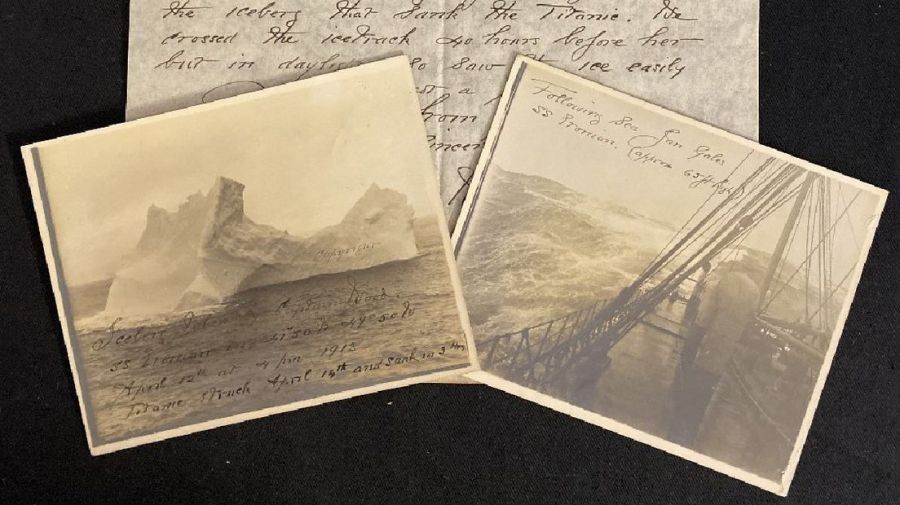 the iceberg that sank the Titanic. We
crossed the ice track 40 hours before her
but in daylight so saw the ice easily
a
from
Copyright
Iceberg taken by Captain Wood
SS Etonian in 41°50 N 49°50 W
April 12th at 4 pm 1912
Titanic struck April 14th and sank in 3 Hrs
Following Sea Jan Gales
SS Etonian